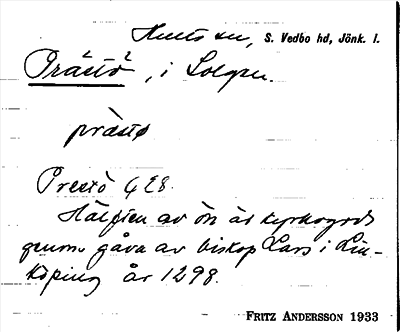 Hults sn, S. Vedbo hd, Jönk. l.
Prästö, i Solgen.
prästø
Prestö GEB.
Hälften av ön är kyrkojord
genom gåva av biskop Lars i Lin-
köping år 1298.
FRITZ ANDERSSON 1933